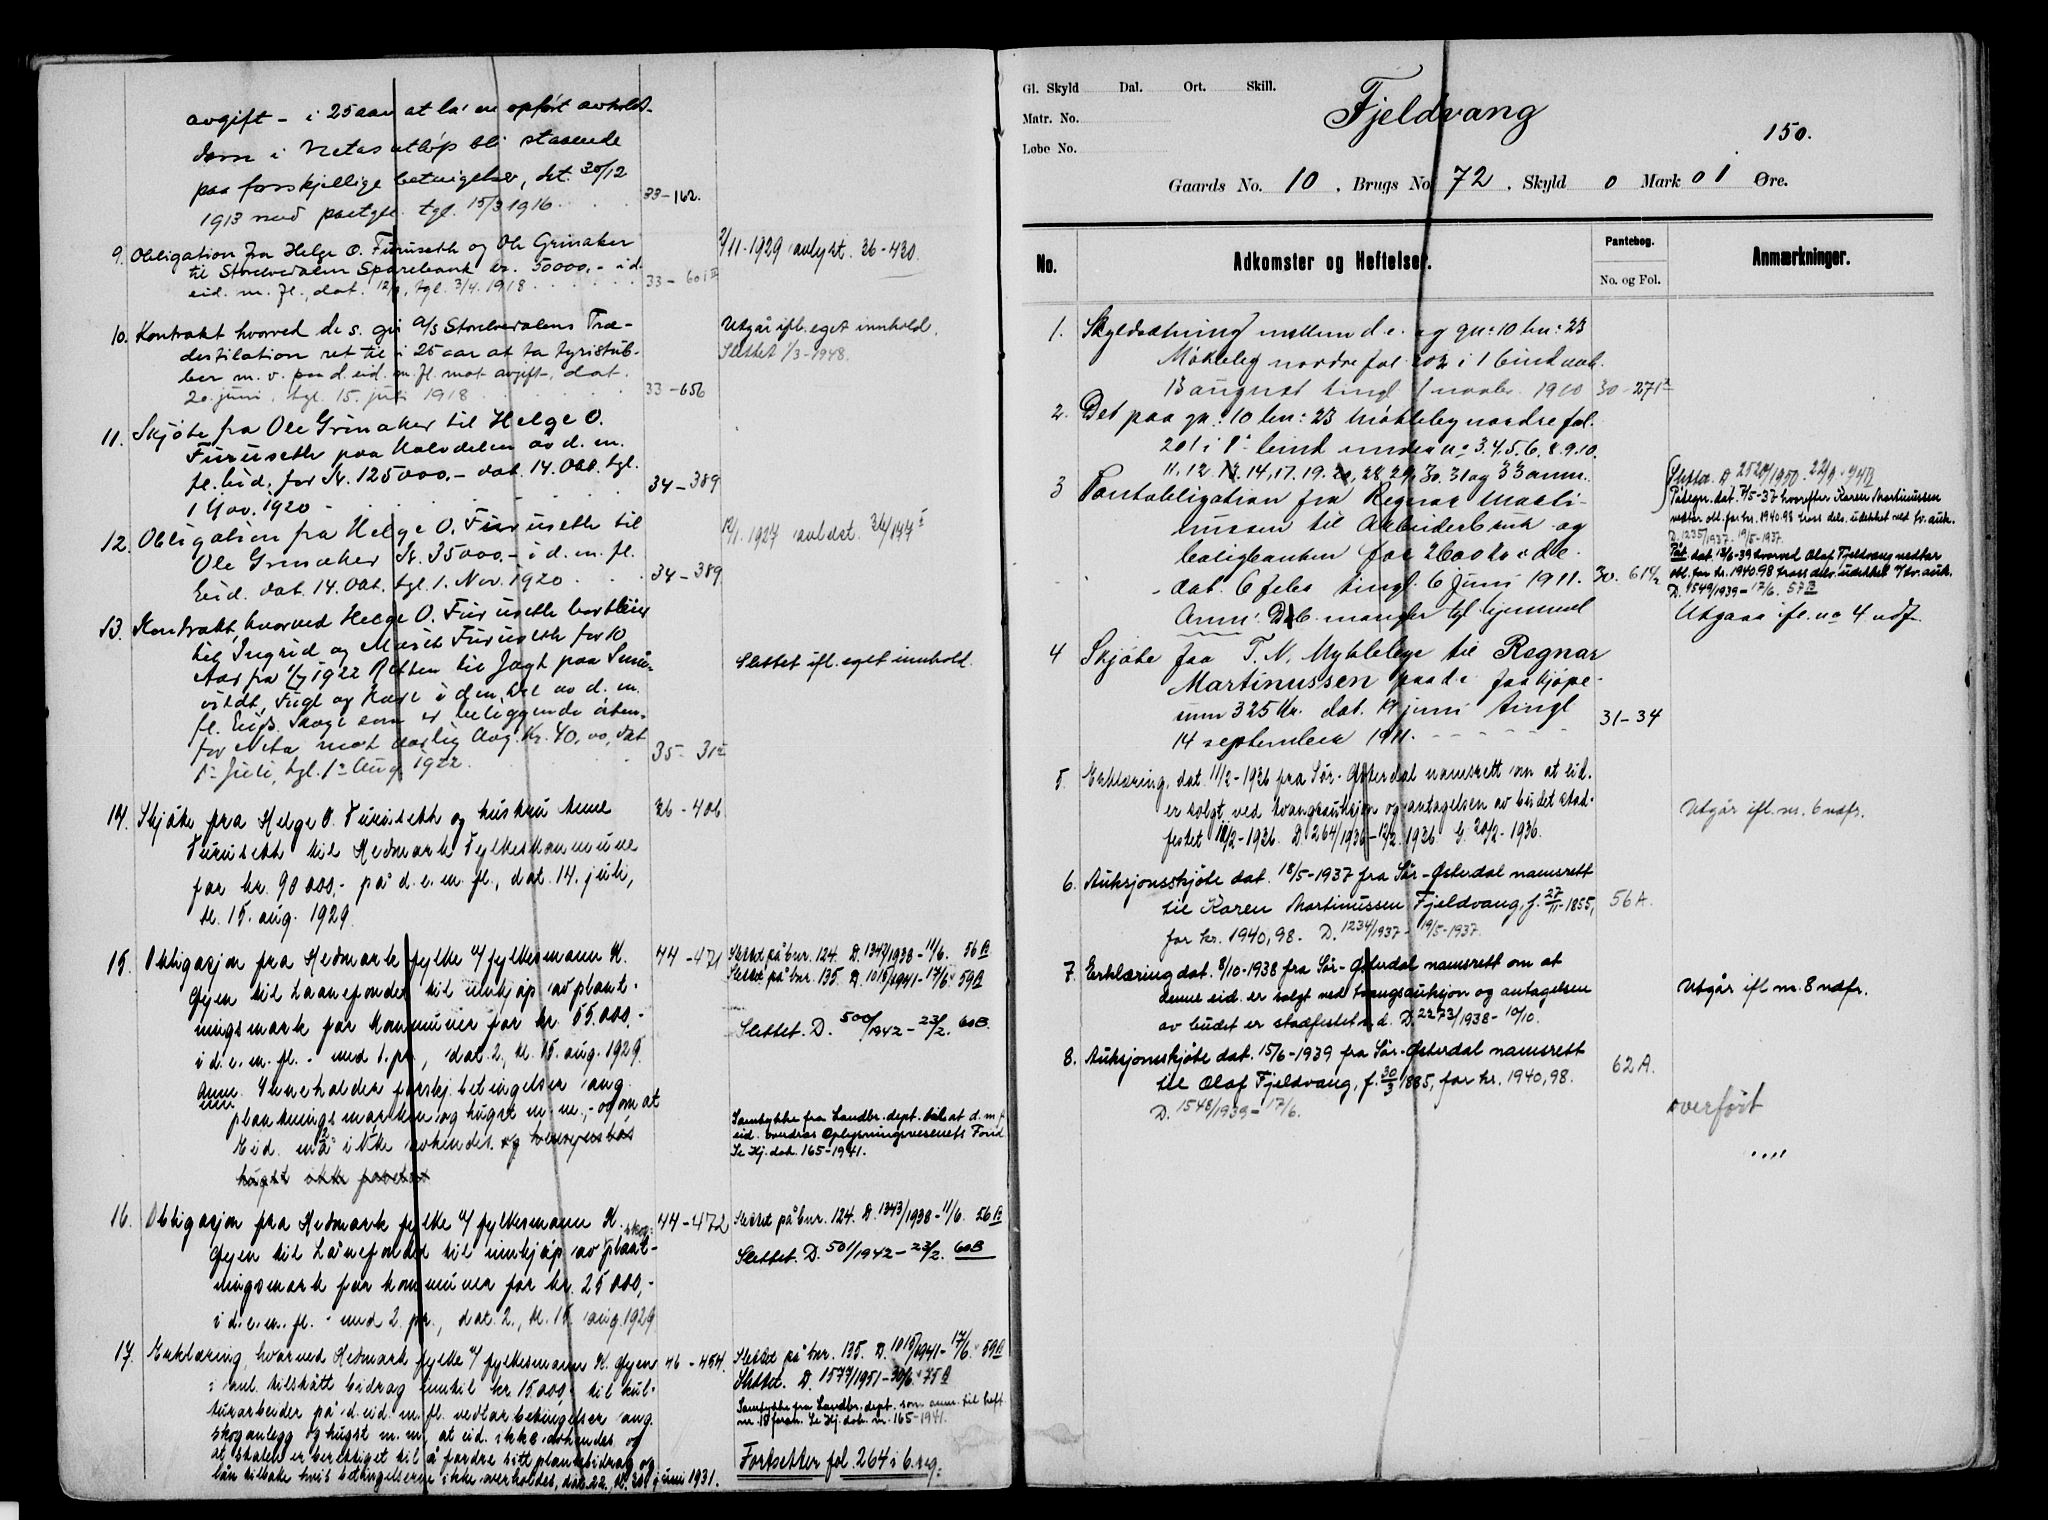 avgift - i 25 aar at la en opført avholds-
dam i Netas utløp bli staaende
paa forskjellige betingelser, dat. 30/12
1913 med paategn. tgl. 15/3 1916 . . . 33-162.
9. Obligation fra Helge O. Furuseth og Ole Grinaker
til Storelvedalen Sparebank kr. 50000,- i d.
eid. m. fl., dat. 12/3, tgl. 3/4 1918 . . . 33-601 II
2/11-1929 avlyst. 36-430.
10. Kontrakt hvorved de s. gir A/S Storelvedalens Træ-
destilation ret til i 25 aar at ta tyristub-
ber m. v. paa d. eid. m. fl. mot avgift, dat.
20. juni, tgl. 15. juli 1918 . . . 33-656
Utgår ifl. eget innhold.
Slettet 1/3-1948.
11. Skjøte fra Ole Grinaker til Helge O.
Furuseth paa Halvdelen av d. m.
fl. Eid. for Kr. 125000,- dat. 14. Okt. tgl.
1 Nov. 1920 - . . . 34-389
12. Obligation fra Helge O. Furuseth til
Ole Grinaker Kr. 35000,- i d. m. fl.
Eid. dat. 14. Okt. tgl. 1. Nov. 1920 . . . 34-389
12/1 1927 avlest. 36/144 I
13. Kontrakt, hvorved Helge O. Furuseth bortleier
til Ingrid og Marit Furuseth for 10
Aar fra 1/7 1922 Retten til Jagt paa Smaa-
vildt, Fugl og Hare i den Del av d. m.
fl. Eids. Skoge som er beliggende østen-
for Neta mot aarlig Avg. Kr. 40,00, dat
1ste Juli, tgl. 1ste Aug. 1922 . . . 35-31
Slettet ifl. eget innhold.
14. Skjøte fra Helge O. Furuseth og hustru Anne
Furuseth til Hedmark Fylkeskommune
for kr. 90 000,- på d. e. m. fl., dat. 14. juli,
tl. 15. aug. 1929. 36-406
15. Obligasjon fra Hedmark fylke v/ fylkesmann K.
Gjen til Laanefondet til innkjøp av plant-
ningsmark for kommuner for kr. 55.000,-
i d. e. m. fl. - med 1. pr., dat. 2., tl. 15. aug. 1929.
Anm. Inneholder forskj. betingelser ang.
plantningsmarken og hugst m. m., og om at
Eid. må ikke avhendes og
44-471
Slettet på bnr. 124. D. 1342/1938-11/6. 56 B
Slettet på bnr. 135. D. 1015/1941-17/6. 59 A
Slettet. D. 500/1942-23/2. 60B.
Samtykke fra Landbr. dept. til at d. m. f
eid. Oplysningsvesenets Fond
Se Hj. dok. 165-1941.
16. Obligasjon fra Hedmark fylke v/ fylkesmann K.
Gjen til Lånefondet til innkjøp av skogplant-
ningsmark for kommuner for kr. 25 000,-
i d. e. m. fl. - med 2. pr., dat. 2., tl. 15. aug. 1929
44-472
Slettet på bnr. 124. D. 1343/1938-11/6. 56 B
Slettet. D. 501/1942-23/2. 60B
17. Erklæring, hvorved Hedmark fylke v/ fylkesmann K. Gjen
i anl. tilstått bidrag inntil kr. 15.000,- til kul-
turarbeider på d. eid. m. fl. vedtar betingelser ang.
skoganlegg og hugst m. m., at eid. ikke avhendes og
at staten er berettiget til å fordre sitt plantebidrag og
lån tilbake hvis betingelserne ikke overholdes, dat. 22., tl. 24. juni 1931.
46-454.
Slettet på bnr. 135. D. 1015/1941-17/6. 59 A
Slettet. D. 1577/1951-30/6. 75 A
Samtykke fra Landbr. dept. som anm. til heft.
nr. 15 foran. Se Hj. dok. nr. 165-1941.
Fortsetter fol. 264 i 6. reg.
Gl. Skyld Dal. Ort. Skill.
Matr. No.
Løbe No.
Fjeldvang
150.
Gaards No. 10, Brugs No. 72, Skyld 0 Mark 01 Øre.
No. Adkomster og Heftelser. Pantebog. No. og Fol. Anmærkninger.
1. Skyldsætning mellem d. e. og gn: 10 bn: 23
Møkleby nordre fol 202 i 1 bind avh.
13 august tingl 1 novbr. 1910 30-271
2. Det paa gn: 10 bn: 23 Møkleby nordre fol.
201 i 1ste bind under no 3. 4. 5. 6. 8. 9. 10.
11. 12. 13. 14. 17. 19. 20, 28. 29. 30. 31 og 33 anm.
3 Pantobligation fra Regnar Marti-
nussen til Arbeiderbruk og
boligbanken for 2600 kr. i d. e.
dat. 6 febr tingl. 6 juni 1911. 30. 61
Anm: D. C. mangler tgl hjemmel
Slettet. D 2520/1950-22/9-74 B
Påtegn. dat. 7/5-37 hvorefter Karen Martinussen
vedtar obl. for kr. 1940.98 tross dels. udekket ved tv. auk.
D. 1235/1937-19/5-1937.
Påt. dat. 12/6-39 hvorved Olaf Fjeldvang vedtar
obl. for kr. 1940.98 tross dels. udekket v/ tv. auk.
D. 1549/1939-17/6. 57 B
Utgaar ifl. no 4 ndf.
4 Skjøte fra T. N. Mykleby til Regnar
Martinussen paa d. e. for kjøpe-
sum 325 kr. dat. 14 juni tingl
14 september 1911. - - - - - - 31-34
5. Erklæring, dat. 11/2-1936 fra Sør-Østerdal namsrett om at eid.
er solgt ved tvangsauksjon og antagelsen av budet stad-
festet 10/2-1936. D. 264/1936-12/2 1936 G. 20/2-1936.
Utgår ifl. nr. 6 ndfr.
6. Auksjonsskjøte dat. 18/5-1937 fra Sør-Østerdal namsrett
til Karen Martinussen Fjeldvang, f. 27/11-1855,
for kr. 1940,98. D. 1234/1937-19/5-1937.
56 A.
7. Erklæring dat. 8/10-1938 fra Sør-Østerdal namsrett om at
denne eid. er solgt ved tvangsauksjon og antagelsen
av budet er stadfestet s. d. D. 2273/1938-10/10.
Utgår ifl nr. 8 ndfr.
8. Auksjonsskjøte dat. 15/6-1939 fra Sør-Østerdal namsrett
til Olaf Fjeldvang, f. 30/3 1885, for kr. 1940,98.
D. 1548/1939-17/6.
62 A.
overført